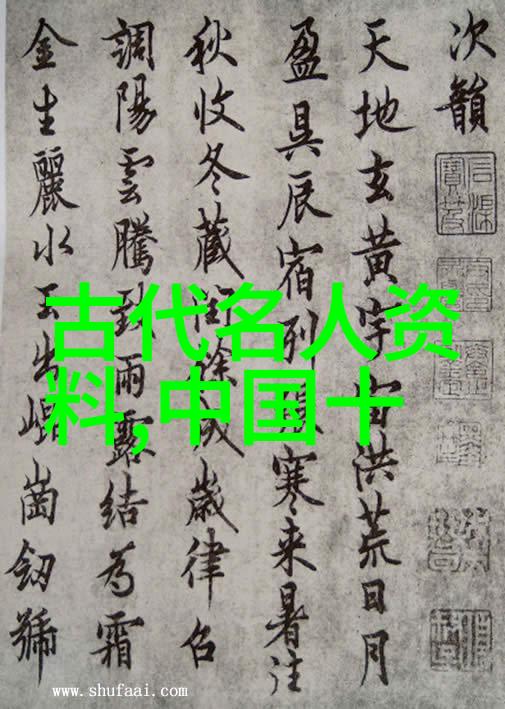 次韻
天地玄黄宇宙洪荒日月
盈昃辰宿列張寒来暑往
秋收冬藏閏餘成歲律召
調陽雲騰致雨露結為霜
金生麗水玉出崐崗劒號
古代名人资
料,中国十
www.shufaai.com